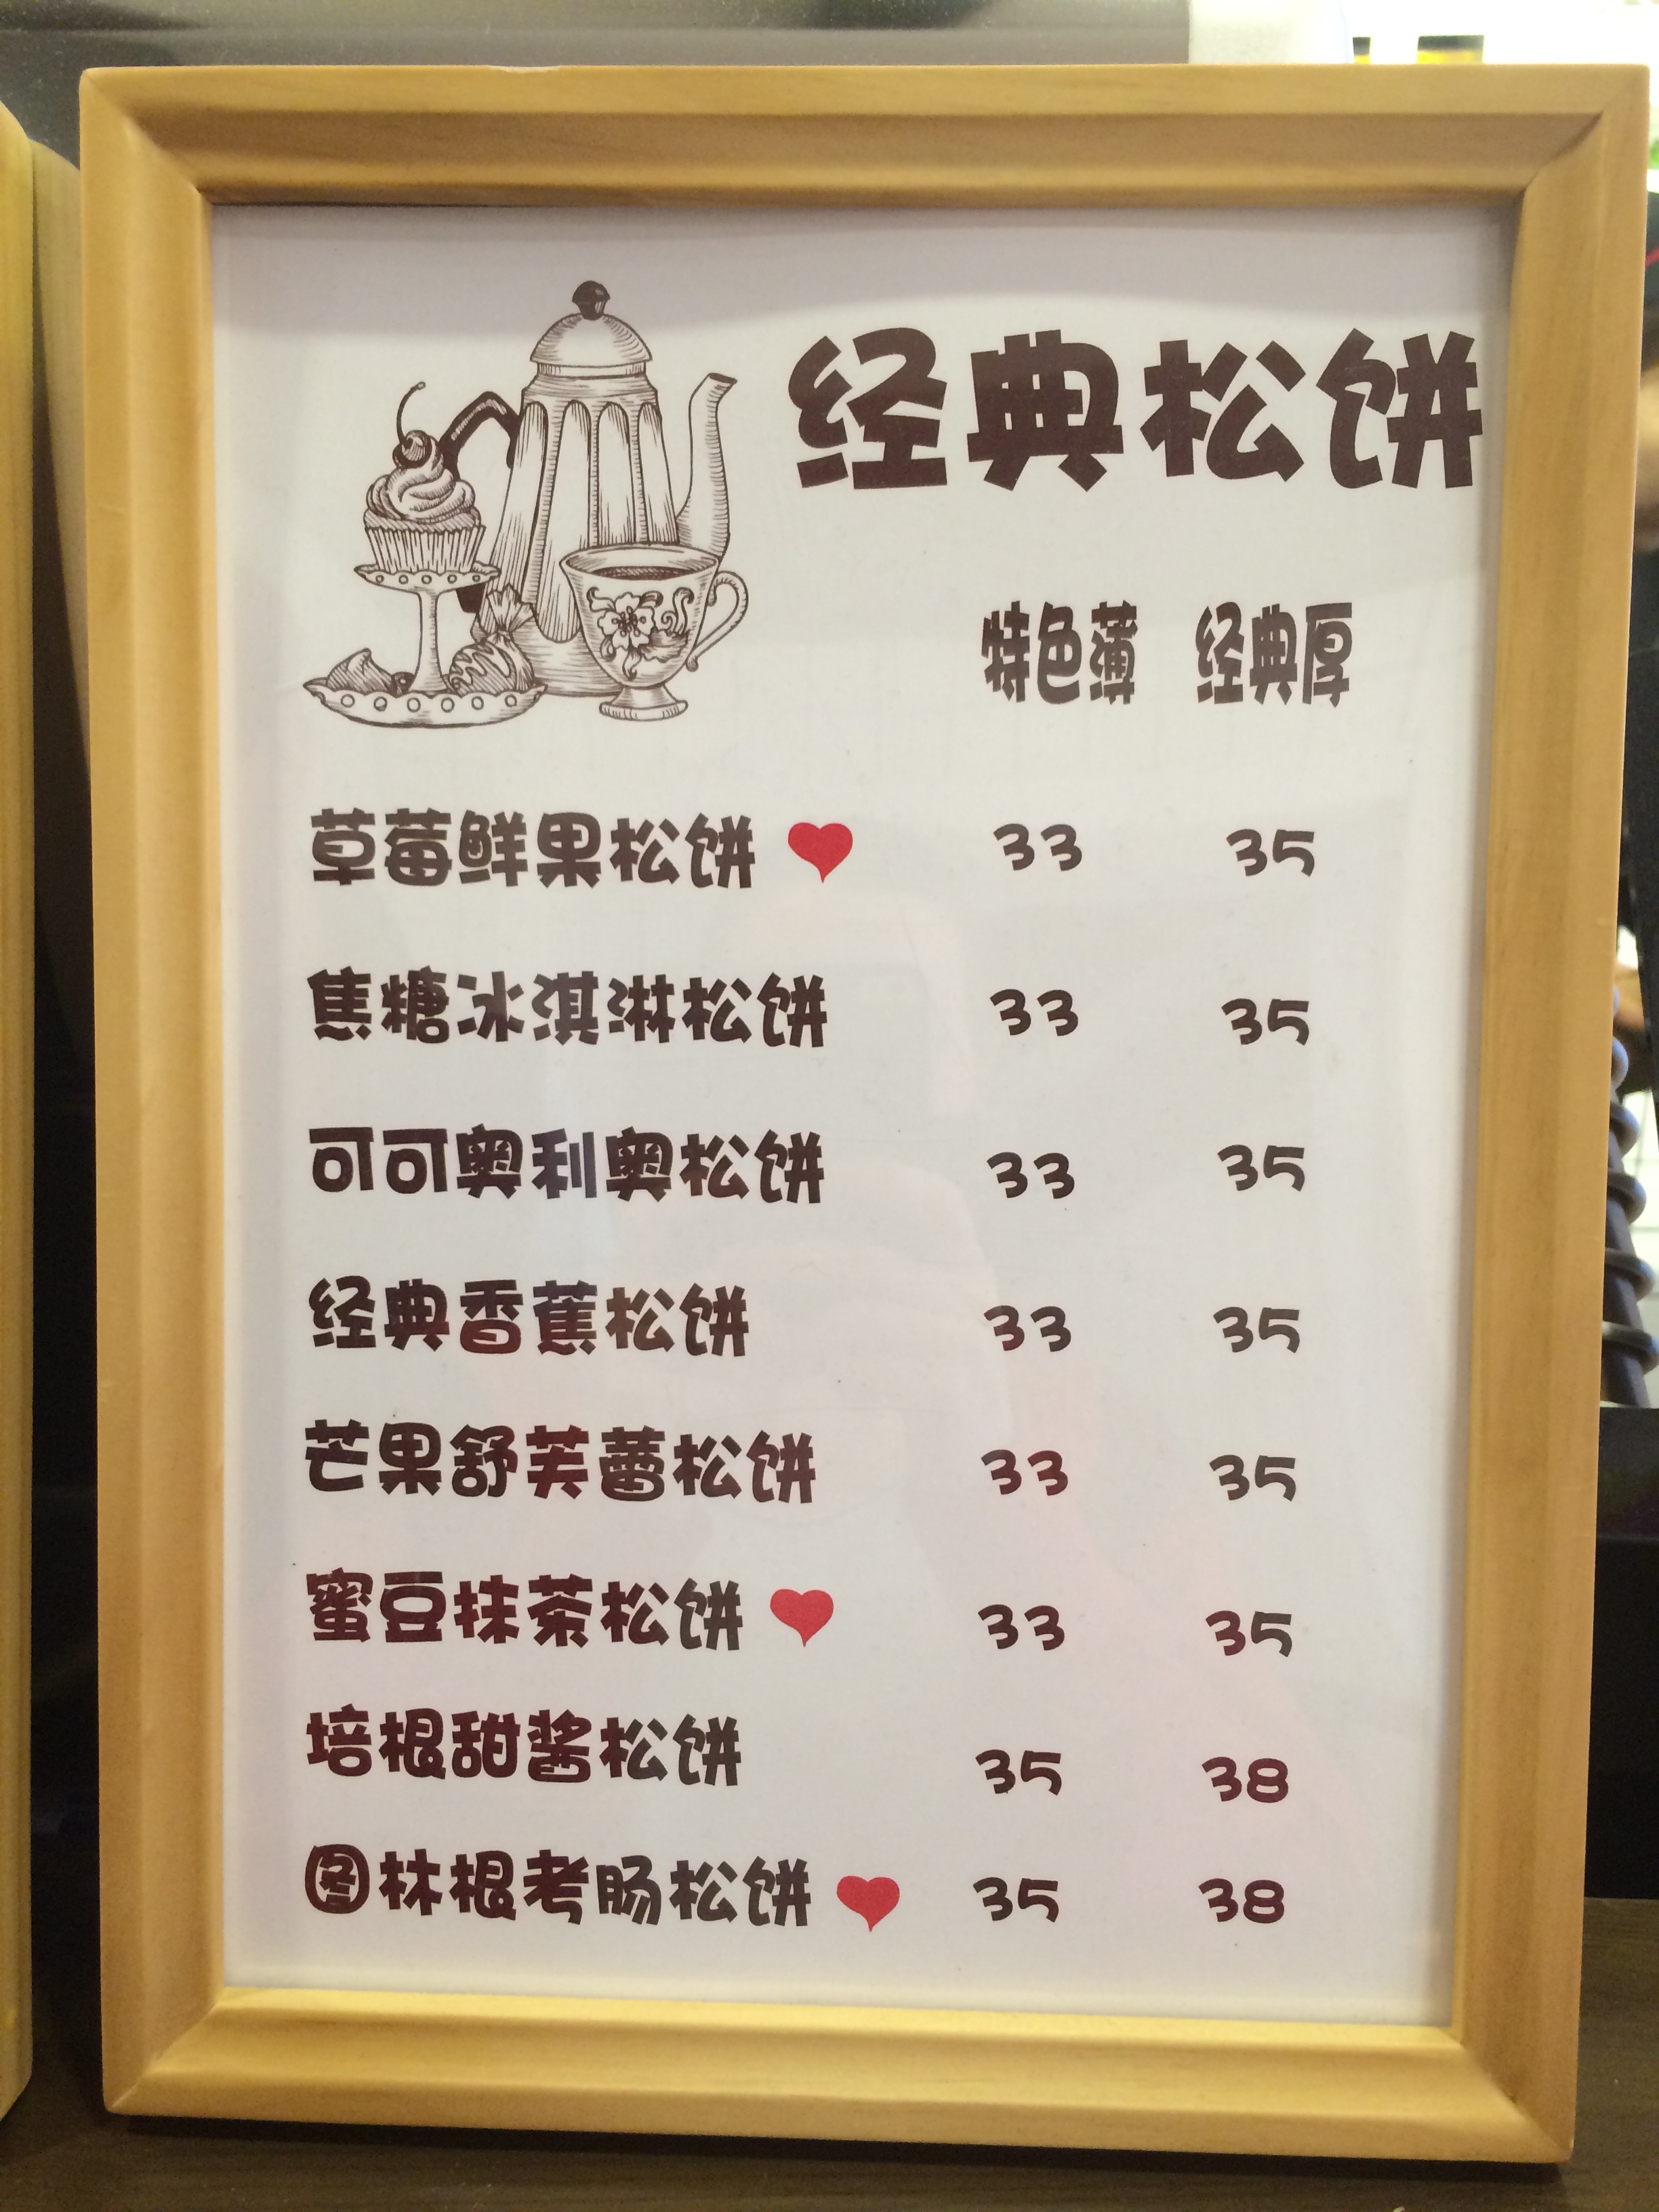 经典松饼
特色薄 经典厚
草莓鲜果松饼 33 35
焦糖冰淇淋松饼 33 35
可可奥利奥松饼 33 35
经典香蕉松饼 33 35
芒果舒芙蕾松饼 33 35
蜜豆抹茶松饼 33 35
培根甜酱松饼 35 38
图林根考肠松饼 35 38